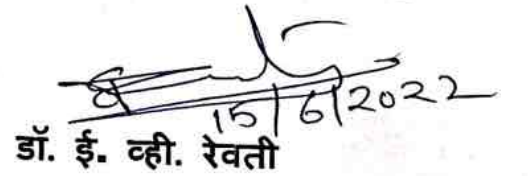 15/6/2022
डॉ. ई. व्ही. रेवती